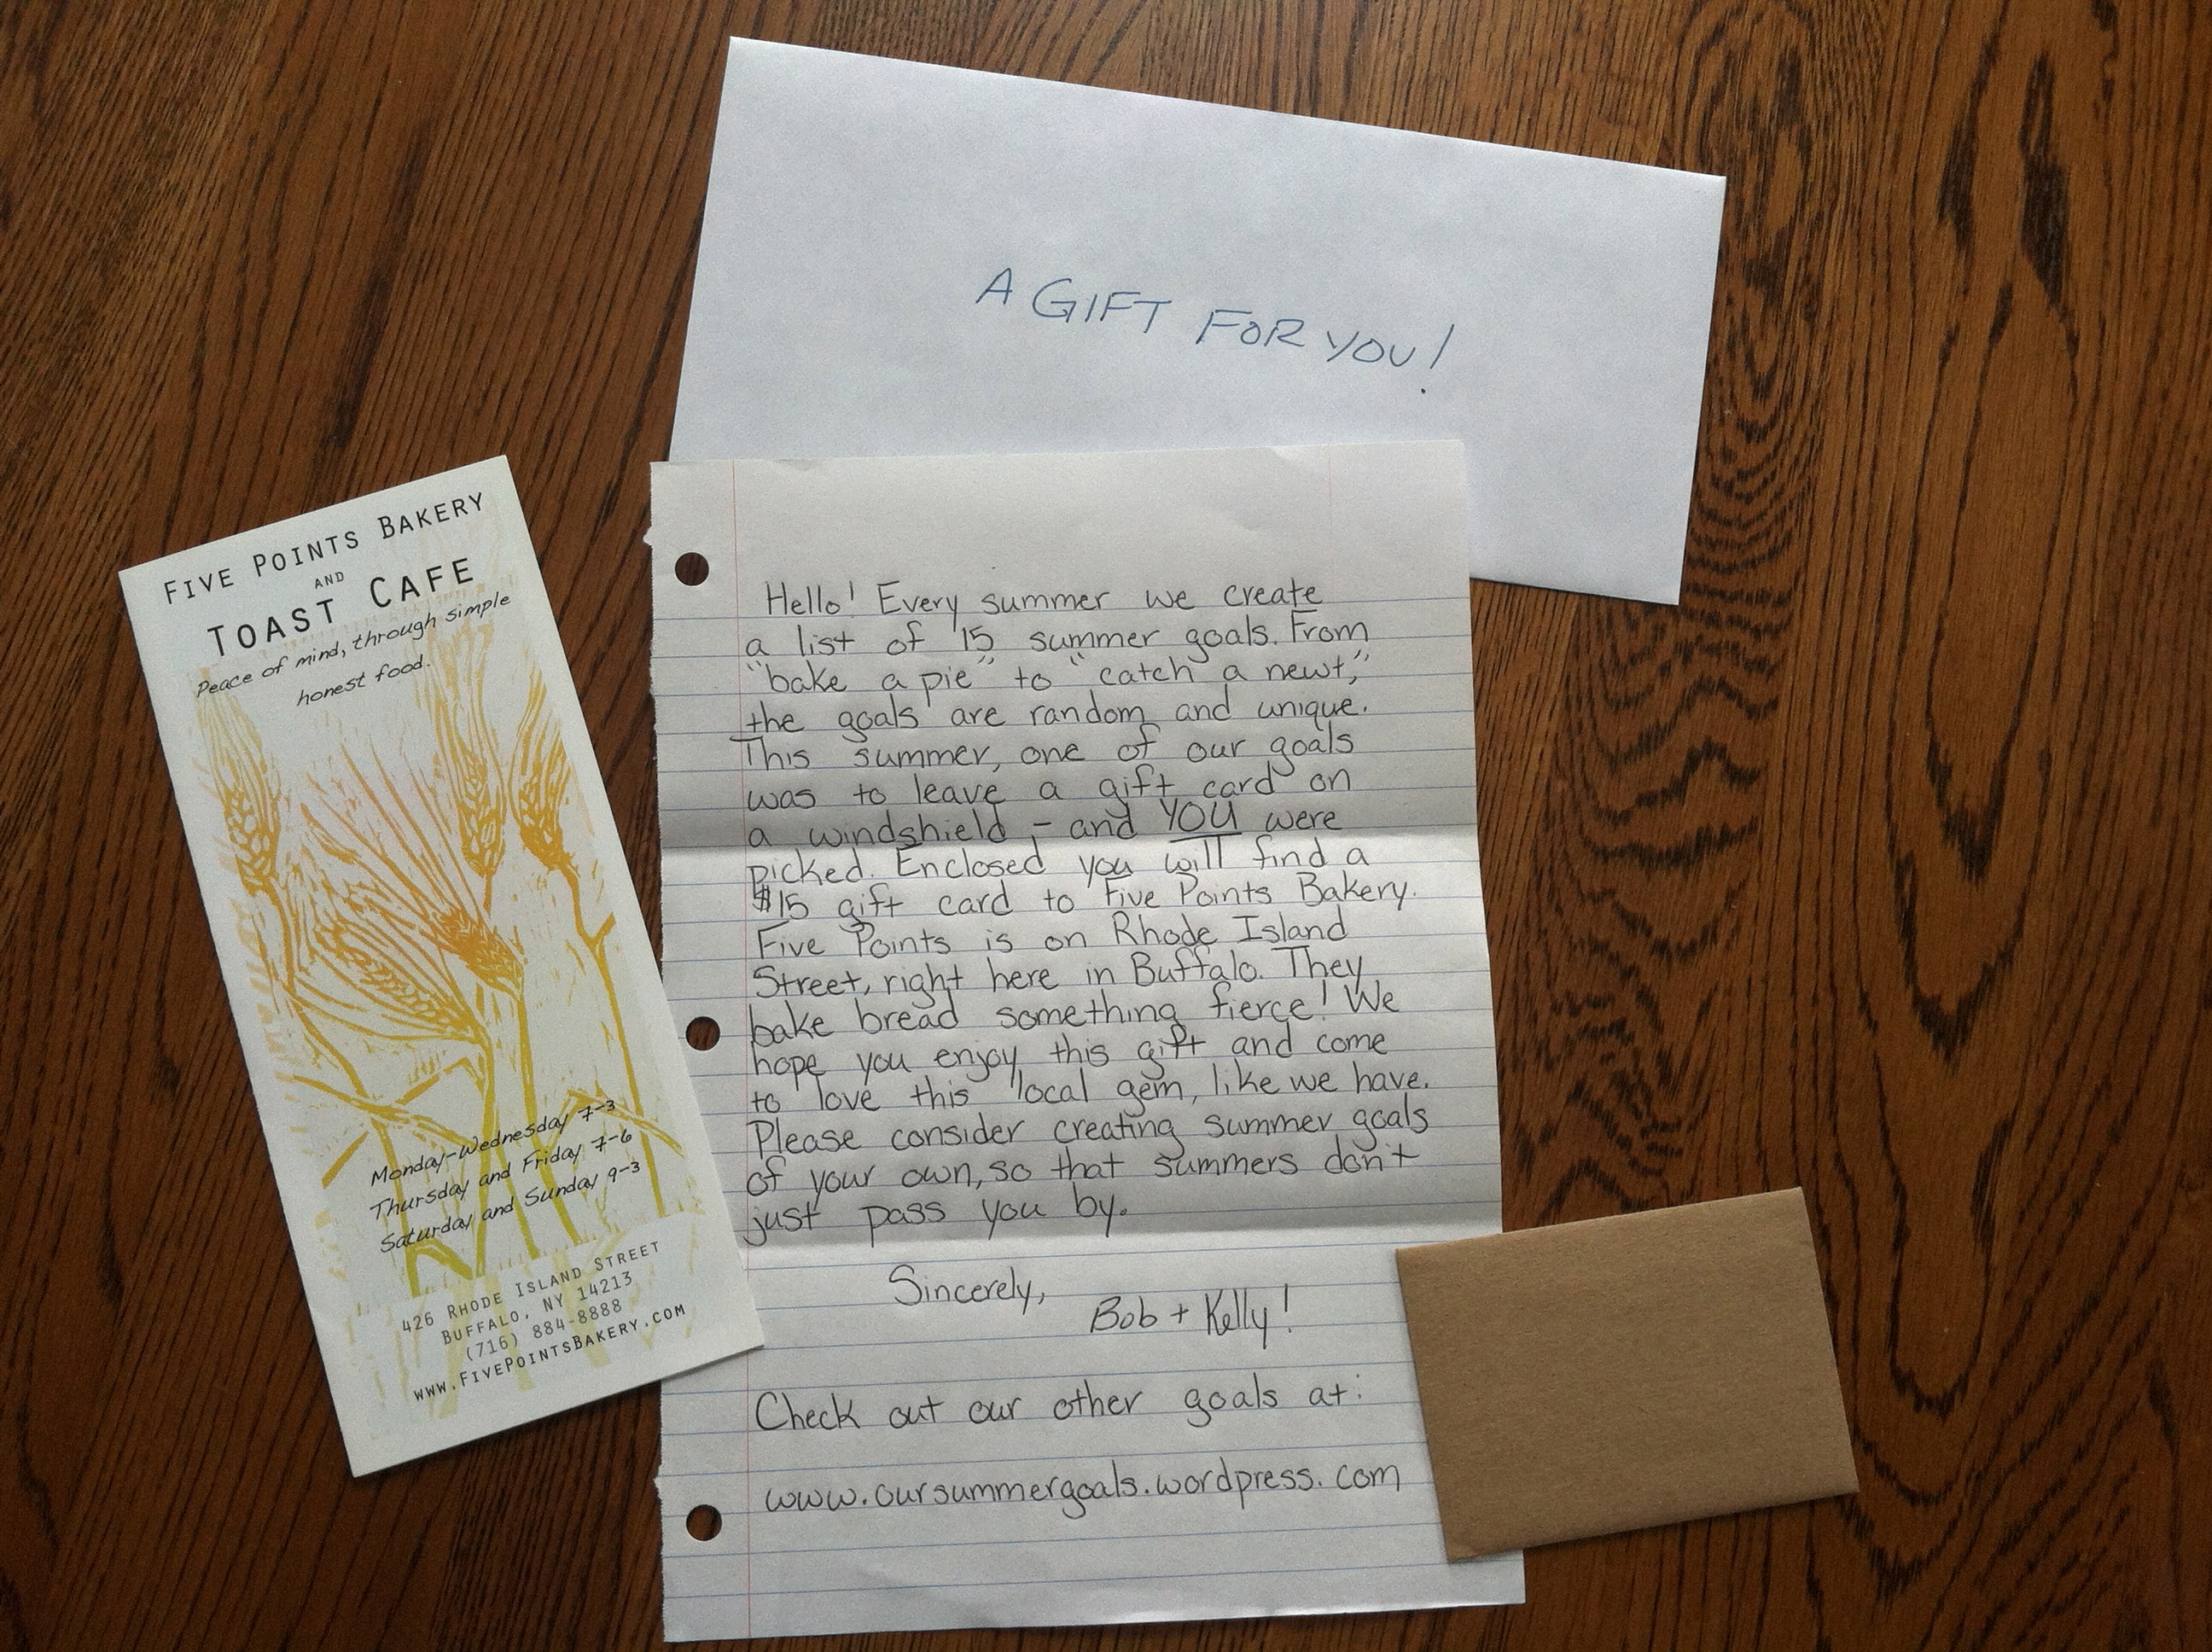 A GIFT FOR YOU!
FIVE POINTS BAKERY
AND
TOAST CAFE
Peace of mind, through simple
honest food.
Monday-Wednesday 7-3
Thursday and Friday 7-6
Saturday and Sunday 9-3
426 RHODE ISLAND STREET
BUFFALO, NY 14213
(716) 884-8888
WWW.FIVEPOINTSBAKERY.COM
Hello! Every summer we create
a list of 15 summer goals. From
"bake a pie" to "catch a newt,"
the goals are random and unique.
This summer, one of our goals
was to leave a gift card on
a windshield - and YOU were
picked. Enclosed you will find a
$15 gift card to Five Points Bakery.
Five Points is on Rhode Island
Street, right here in Buffalo. They
bake bread something fierce! We
hope you enjoy this gift and come
to love this local gem, like we have.
Please consider creating summer goals
of your own, so that summers don't
just pass you by.
Sincerely,
Bob + Kelly!
Check out our other goals at:
www.oursummergoals.wordpress.com